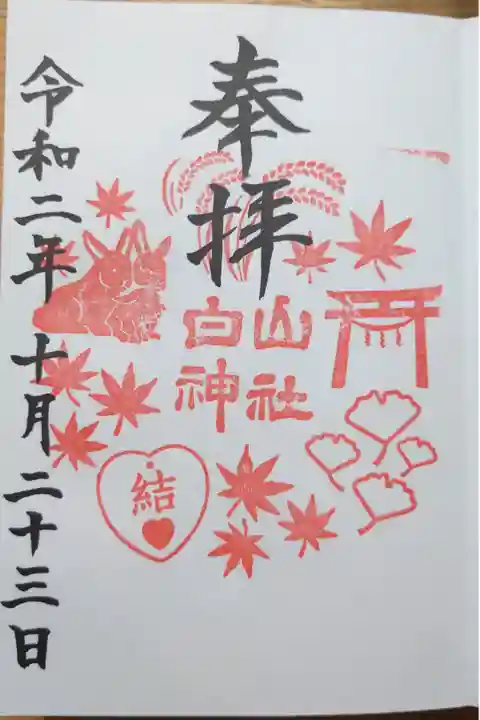 奉拝
白山
神社
結
令和二年 十月二十三日